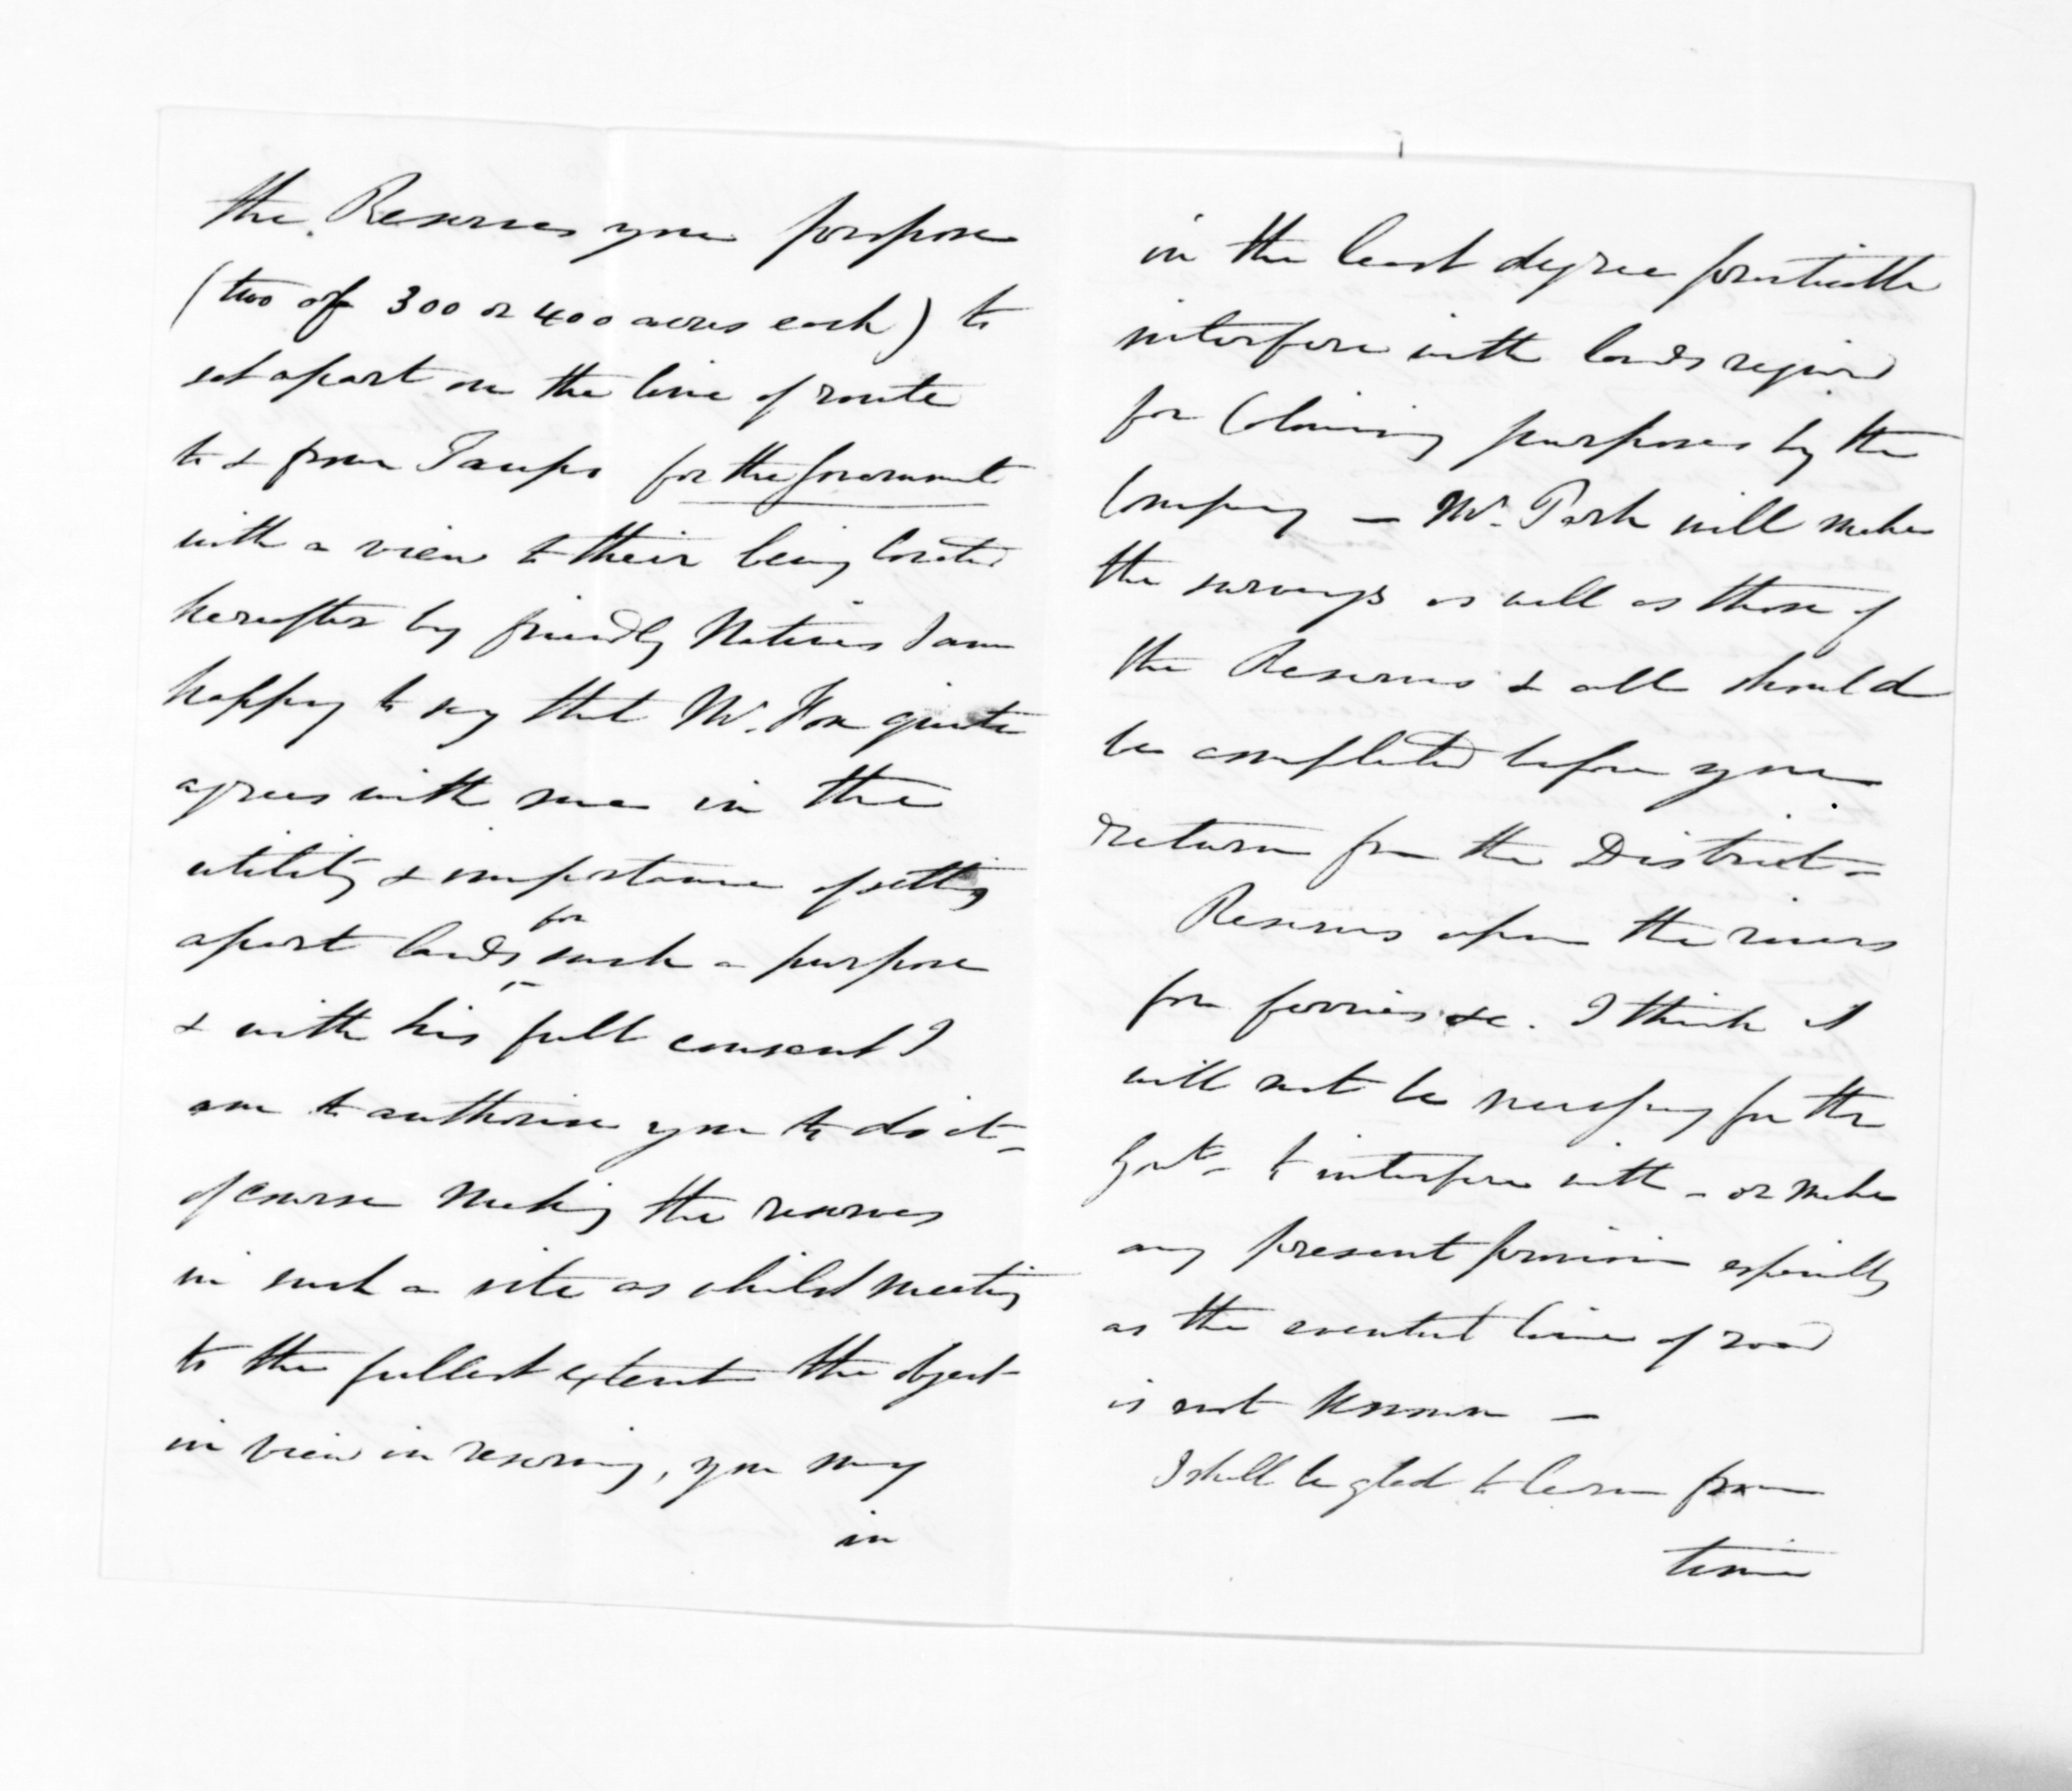 the Reserves you propose
(two of 300 or 400 acres each) to
set apart on the line of route
to & from Taupo for the Government
with a view to their being located
hereafter by friendly Natives I am
happy to say that Mr. Fox quite
agrees with me in the
utility & importance of setting
apart lands for such a purpose
& with his full consent I
am to authorise you to do it -
of course making the reserves
in such a site as whilst meeting
to the fullest extent the object
in view in reserving, you may
in
in the least degree practicable
interfere with lands required
for Colonising purposes by the
Company - Mr. Park will make
the surveys as well as those of
the Reserves & all should
be completed before you
return from the District -
Reserves upon the rivers
for ferries &c. I think it
will not be necessary for the
Govt. to interfere with - or make
any present provision especially
as the eventual line of road
is not known -
I shall be glad to learn from
time